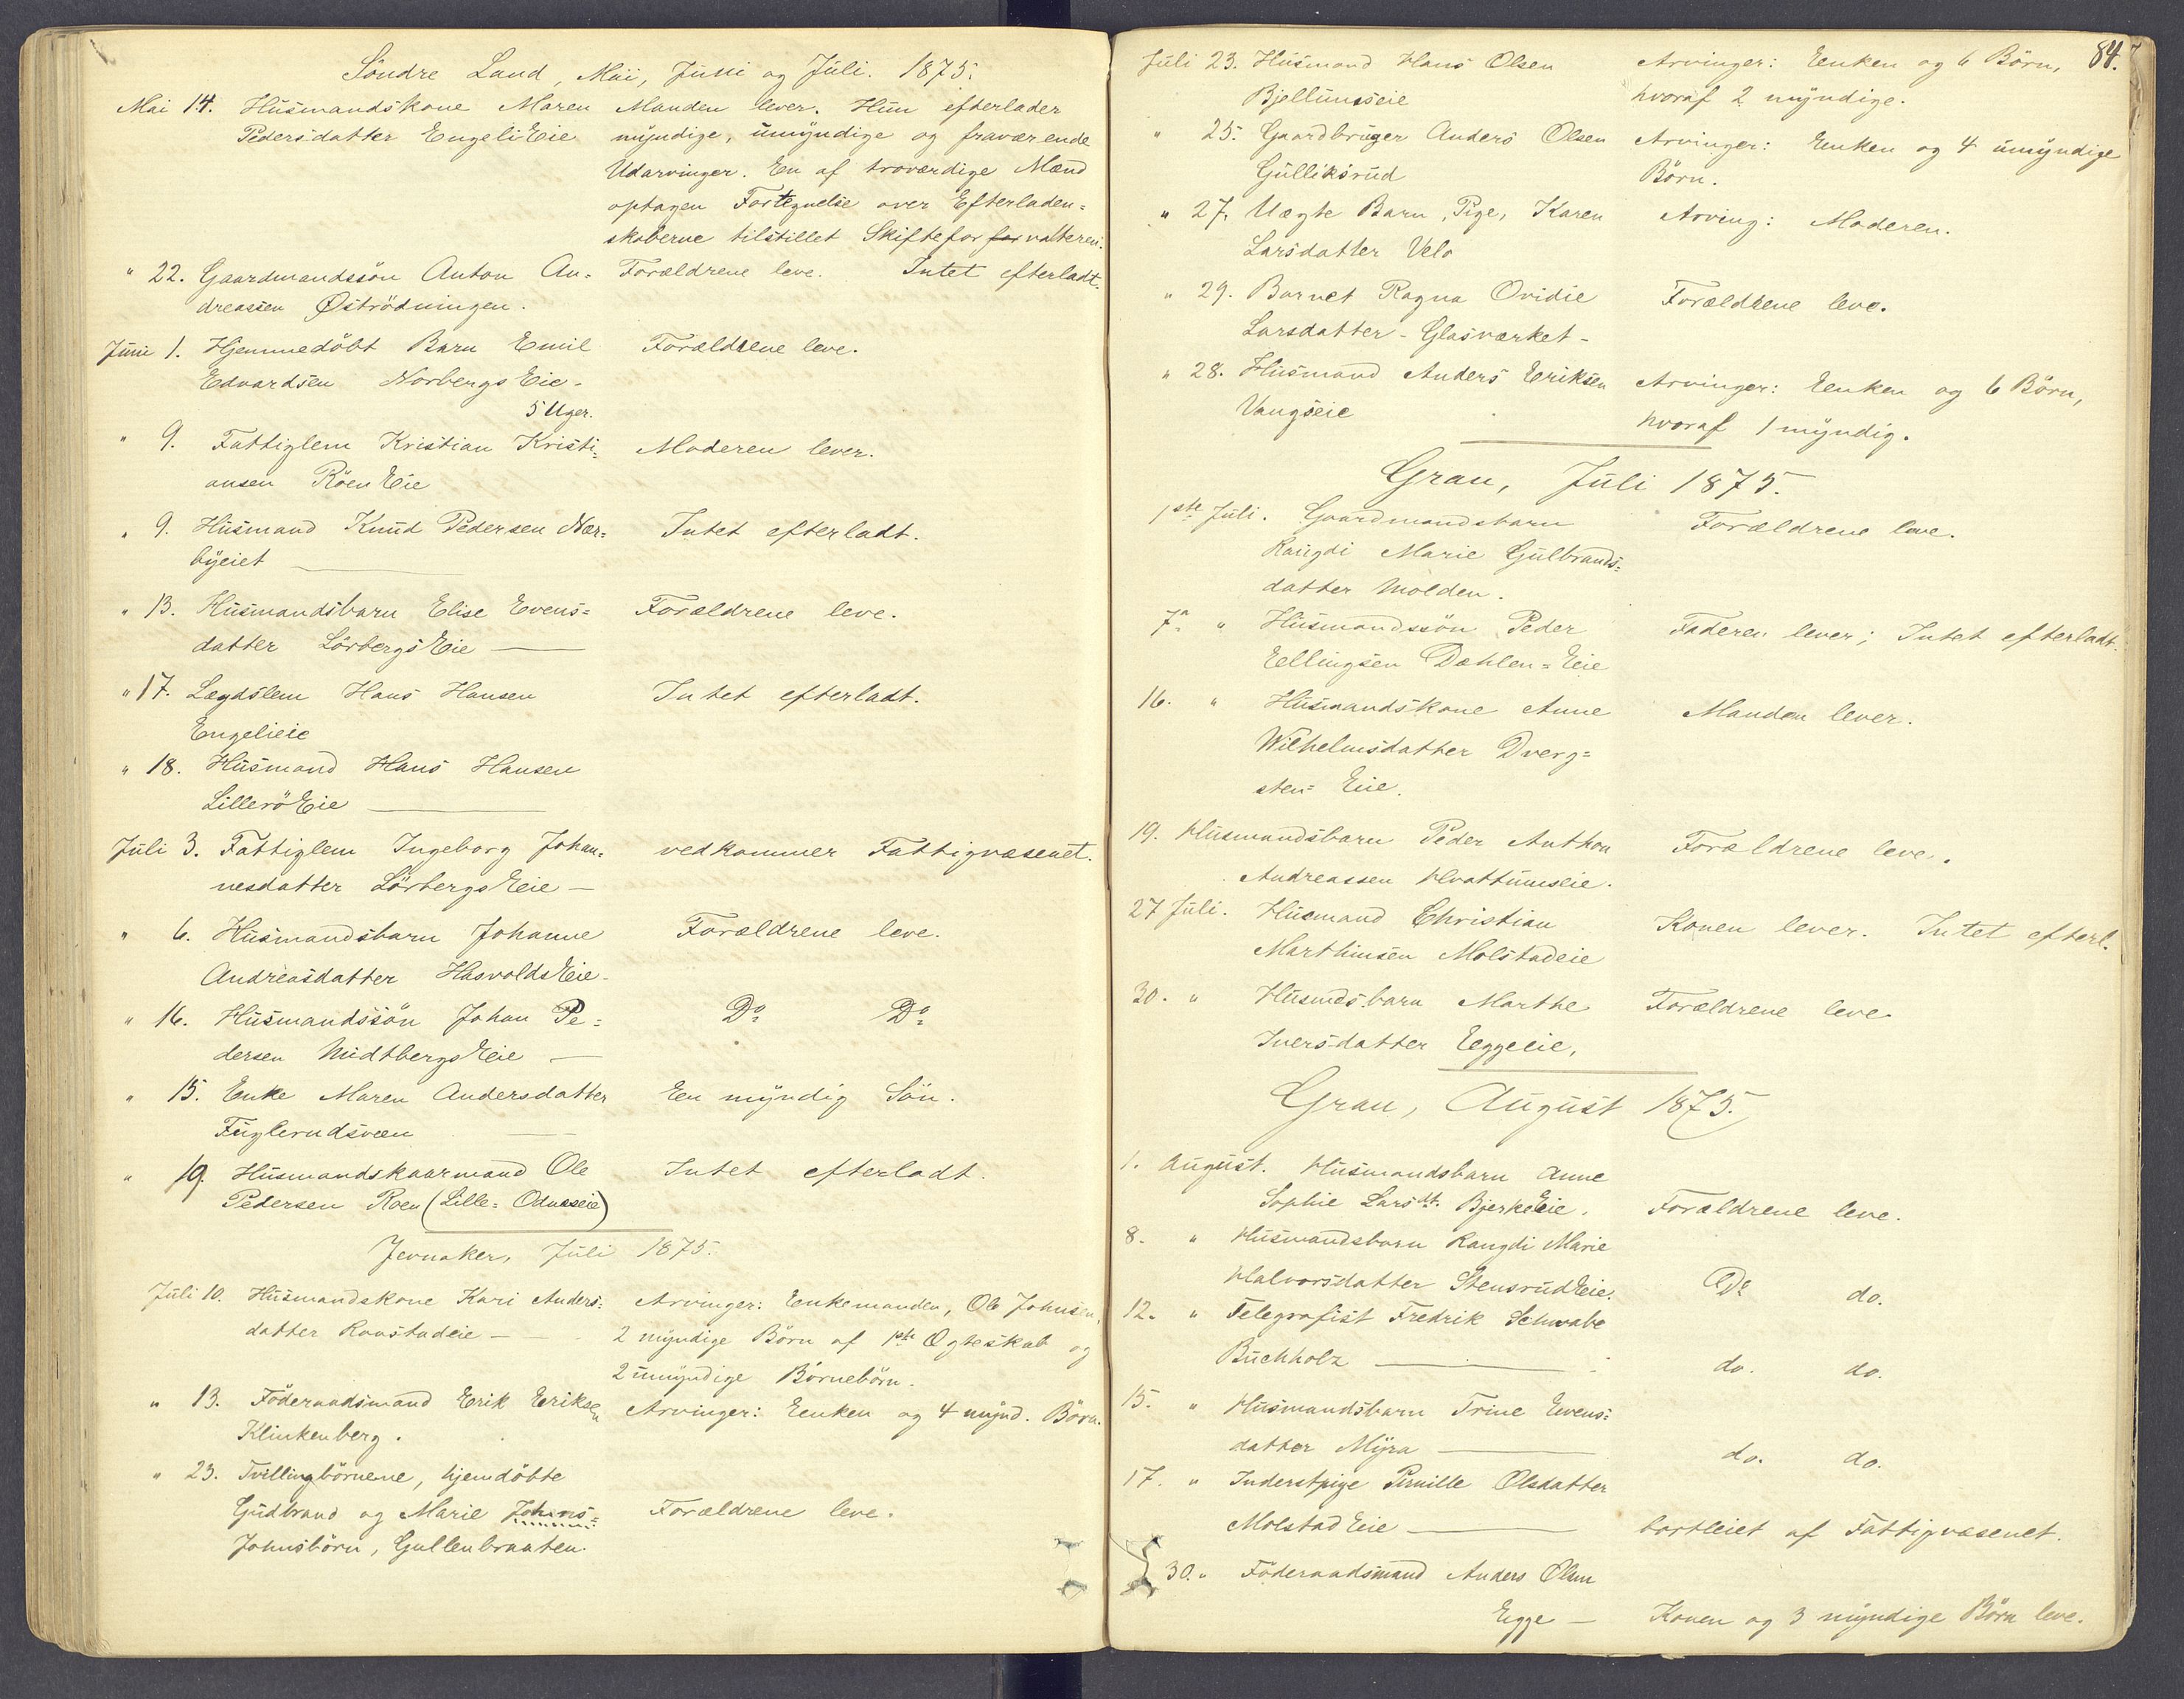 Söndre Land, Mai, Juni og Juli. 1875.
Mai 14. Husmandskone Maren Manden lever. Hun efterlader
Pedersdatter EngeliEie myndige, umyndige og fraværende
Udarvinger. En af troværdige Mænd
optagen Fortegnelse over Efterladen=
skaberne tilstillet Skiftefor for valteren.
" 22. Gaardmandssön Anton An= Forældrene leve. Intet efterladt.
dreassen Øströdningen.
Juni 1. Hjemmedöbt Barn Emil Forældrene leve.
Edvardsen NorbergsEie-
5 Uger.
" 9. Fattiglem Kristian Kristi= Moderen lever.
ansen RöenEie
" 9. Husmand Knud Pedersen Nær= Intet efterladt.
byeiet
" 13. Husmandsbarn Elise Evens= Forældrene leve.
datter LörbergsEie
" 17. Lægdslem Hans Hansen Intet efterladt.
Engelieie
" 18. Husmand Hans Hansen
LilleröEie
Juli 3. Fattiglem Ingeborg Johan= vedkommer Fattigvæsenet.
nesdatter LörbergsEie -
" 6. Husmandsbarn Johanne Forældrene leve.
Andreasdatter HasvoldsEie-
" 16. Husmandssön Johan Pe= Do Do
dersen MidtbergsEie -
" 15. Enke Maren Andersdatter En myndig Sön.
Fuglerudsveen
" 19. Husmandskaarmand Ole Intet efterladt.
Pedersen Roen (Lille= Odnæseie)
Jevnaker, Juli 1875.
Juli 10. Husmandskone Kari Anders= Arvinger: Enkemanden, Ole Johnsen,
datter Raastadeie - 2 myndige Börn af 1ste Ægteskab og
2 umyndige Börnebörn.
" 13. Föderaadsmand Erik Eriksen Arvinger: Enken og 4 mynd. Börn.
Klinkenberg.
" 23. Tvillingbörnene, hjemdöbte
Gudbrand og Marie Johns= Forældrene leve.
Johnsbörn, Gullenbraaten.
84.
Juli 23. Husmand Hans Olsen Arvinger: Enken og 6 Börn,
Bjellumseie hvoraf 2 myndige.
" 25. Gaardbruger Anders Olsen Arvinger: Enken og 4 umyndige
Gulliksrud Börn.
" 27. Uægte Barn, Pige, Karen Arving: Moderen.
Larsdatter Velo
" 29. Barnet Ragna Ovidie Forældrene leve.
Larsdatter - Glasværket -
" 28. Husmand Anders Eriksen Arvinger: Enken og 6 Börn,
Vangseie hvoraf 1 myndig.
Gran, Juli 1875.
1ste Juli. Gaardmandsbarn Forældrene leve.
Rangdi Marie Gulbrands=
datter Molden.
7. " Husmandssön Peder Faderen lever; Intet efterladt.
Ellingsen Dæhlen=Eie
16. " Husmandskone Anne Manden lever.
Wilhelmsdatter Dverg=
sten= Eie.
19. Husmandsbarn Peder Anthon Forældrene leve.
Andreassen Hvattumseie.
27 Juli. Husmand Christian Konen lever. Intet efterl.
Marthinsen Molstadeie
30. " Husmds.barn Marthe Forældrene leve.
Iversdatter Eggeeie,
Gran, August 1875.
1. August. Husmandsbarn Anne
Sophie Larsdt. BjerkeEie. Forældrene leve.
8. " Husmandsbarn Rangdi Marie
Halvorsdatter StensrudEie. Do do.
12. " Telegrafist Fredrik Schwabe
Buchholz do. do.
15. " Husmandsbarn Trine Evens=
datter Myra do. do.
17. " Inderstpige Pernille Olsdatter
Molstad Eie bortleiet af Fattigvæsenet.
30. " Föderaadsmand Anders Olsen
Egge - Konen og 3 myndige Börn leve.